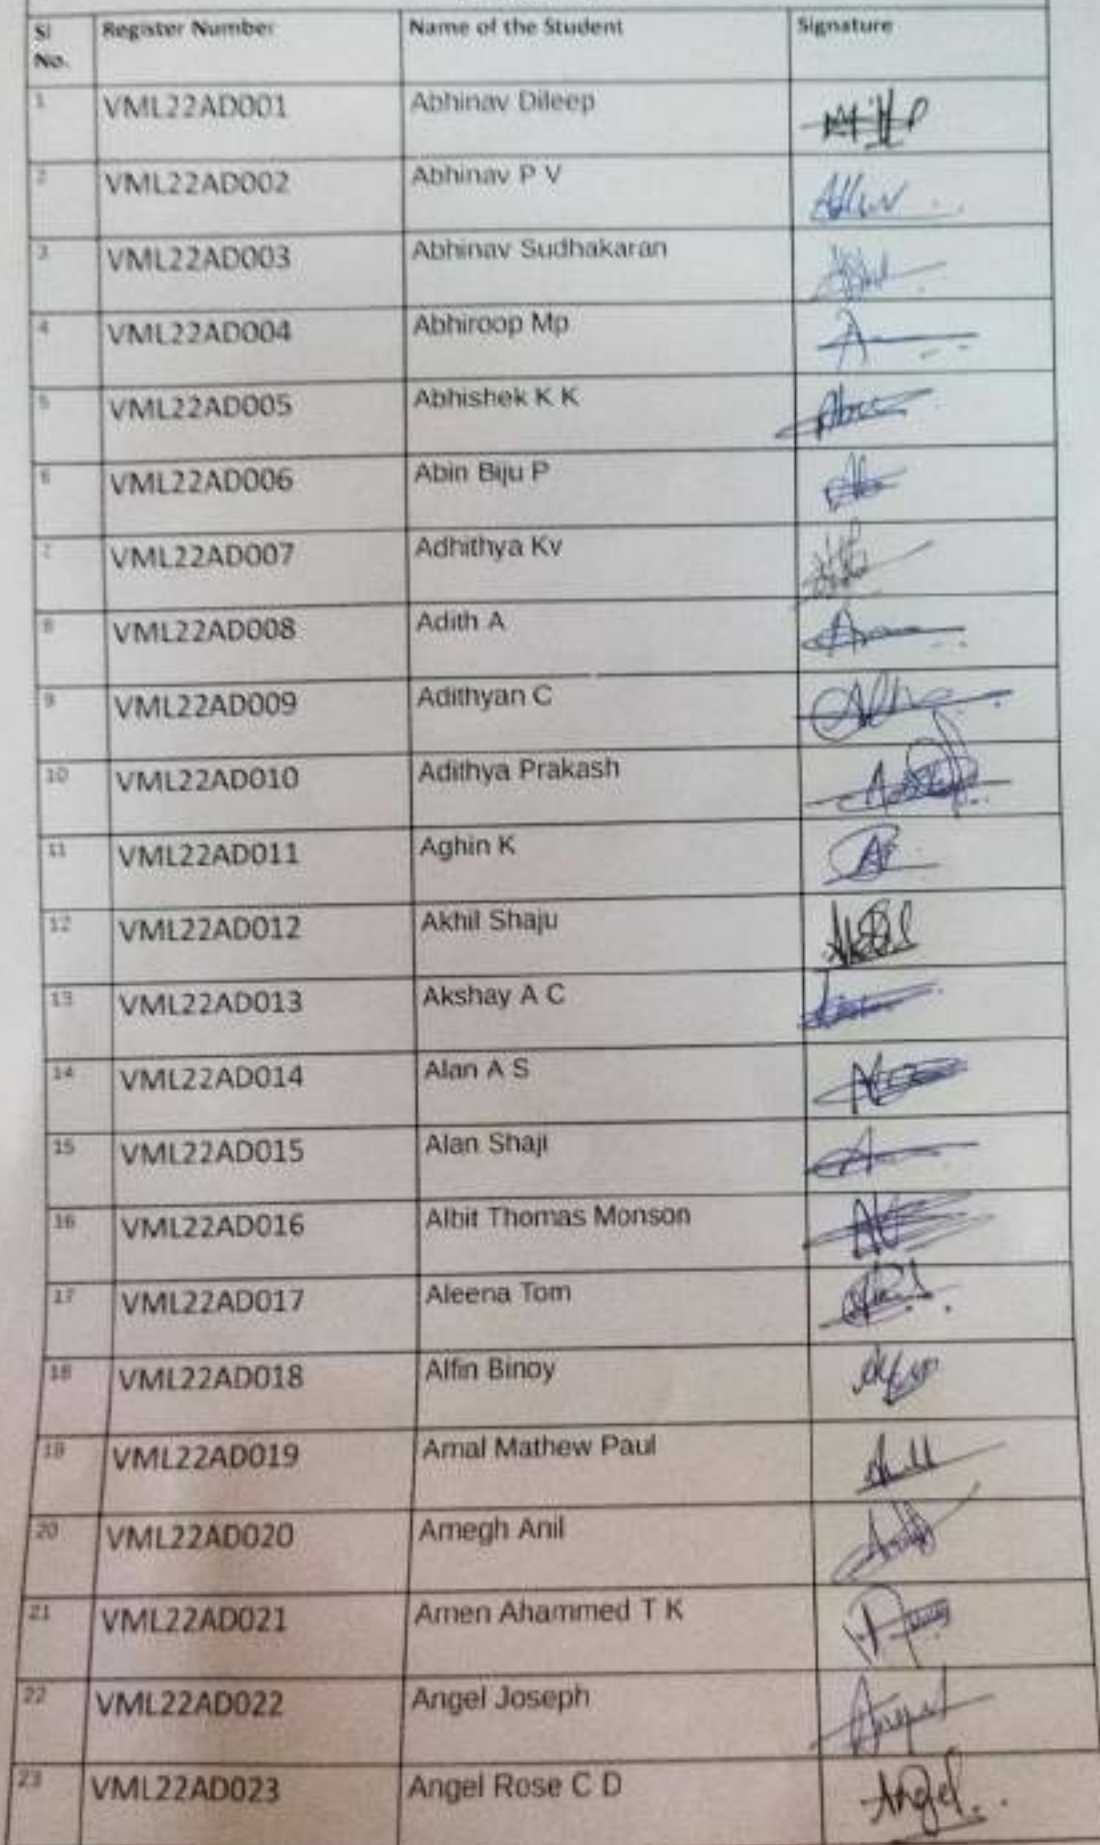 Sl No. Register Number Name of the Student Signature
1 VML22AD001 Abhinav Dileep
2 VML22AD002 Abhinav P V
3 VML22AD003 Abhinav Sudhakaran
4 VML22AD004 Abhiroop Mp
5 VML22AD005 Abhishek K K
6 VML22AD006 Abin Biju P
7 VML22AD007 Adhithya Kv
8 VML22AD008 Adith A
9 VML22AD009 Adithyan C
10 VML22AD010 Adithya Prakash
11 VML22AD011 Aghin K
12 VML22AD012 Akhil Shaju
13 VML22AD013 Akshay A C
14 VML22AD014 Alan A S
15 VML22AD015 Alan Shaji
16 VML22AD016 Albit Thomas Monson
17 VML22AD017 Aleena Tom
18 VML22AD018 Alfin Binoy
19 VML22AD019 Amal Mathew Paul
20 VML22AD020 Amegh Anil
21 VML22AD021 Amen Ahammed T K
22 VML22AD022 Angel Joseph
23 VML22AD023 Angel Rose C D Angel